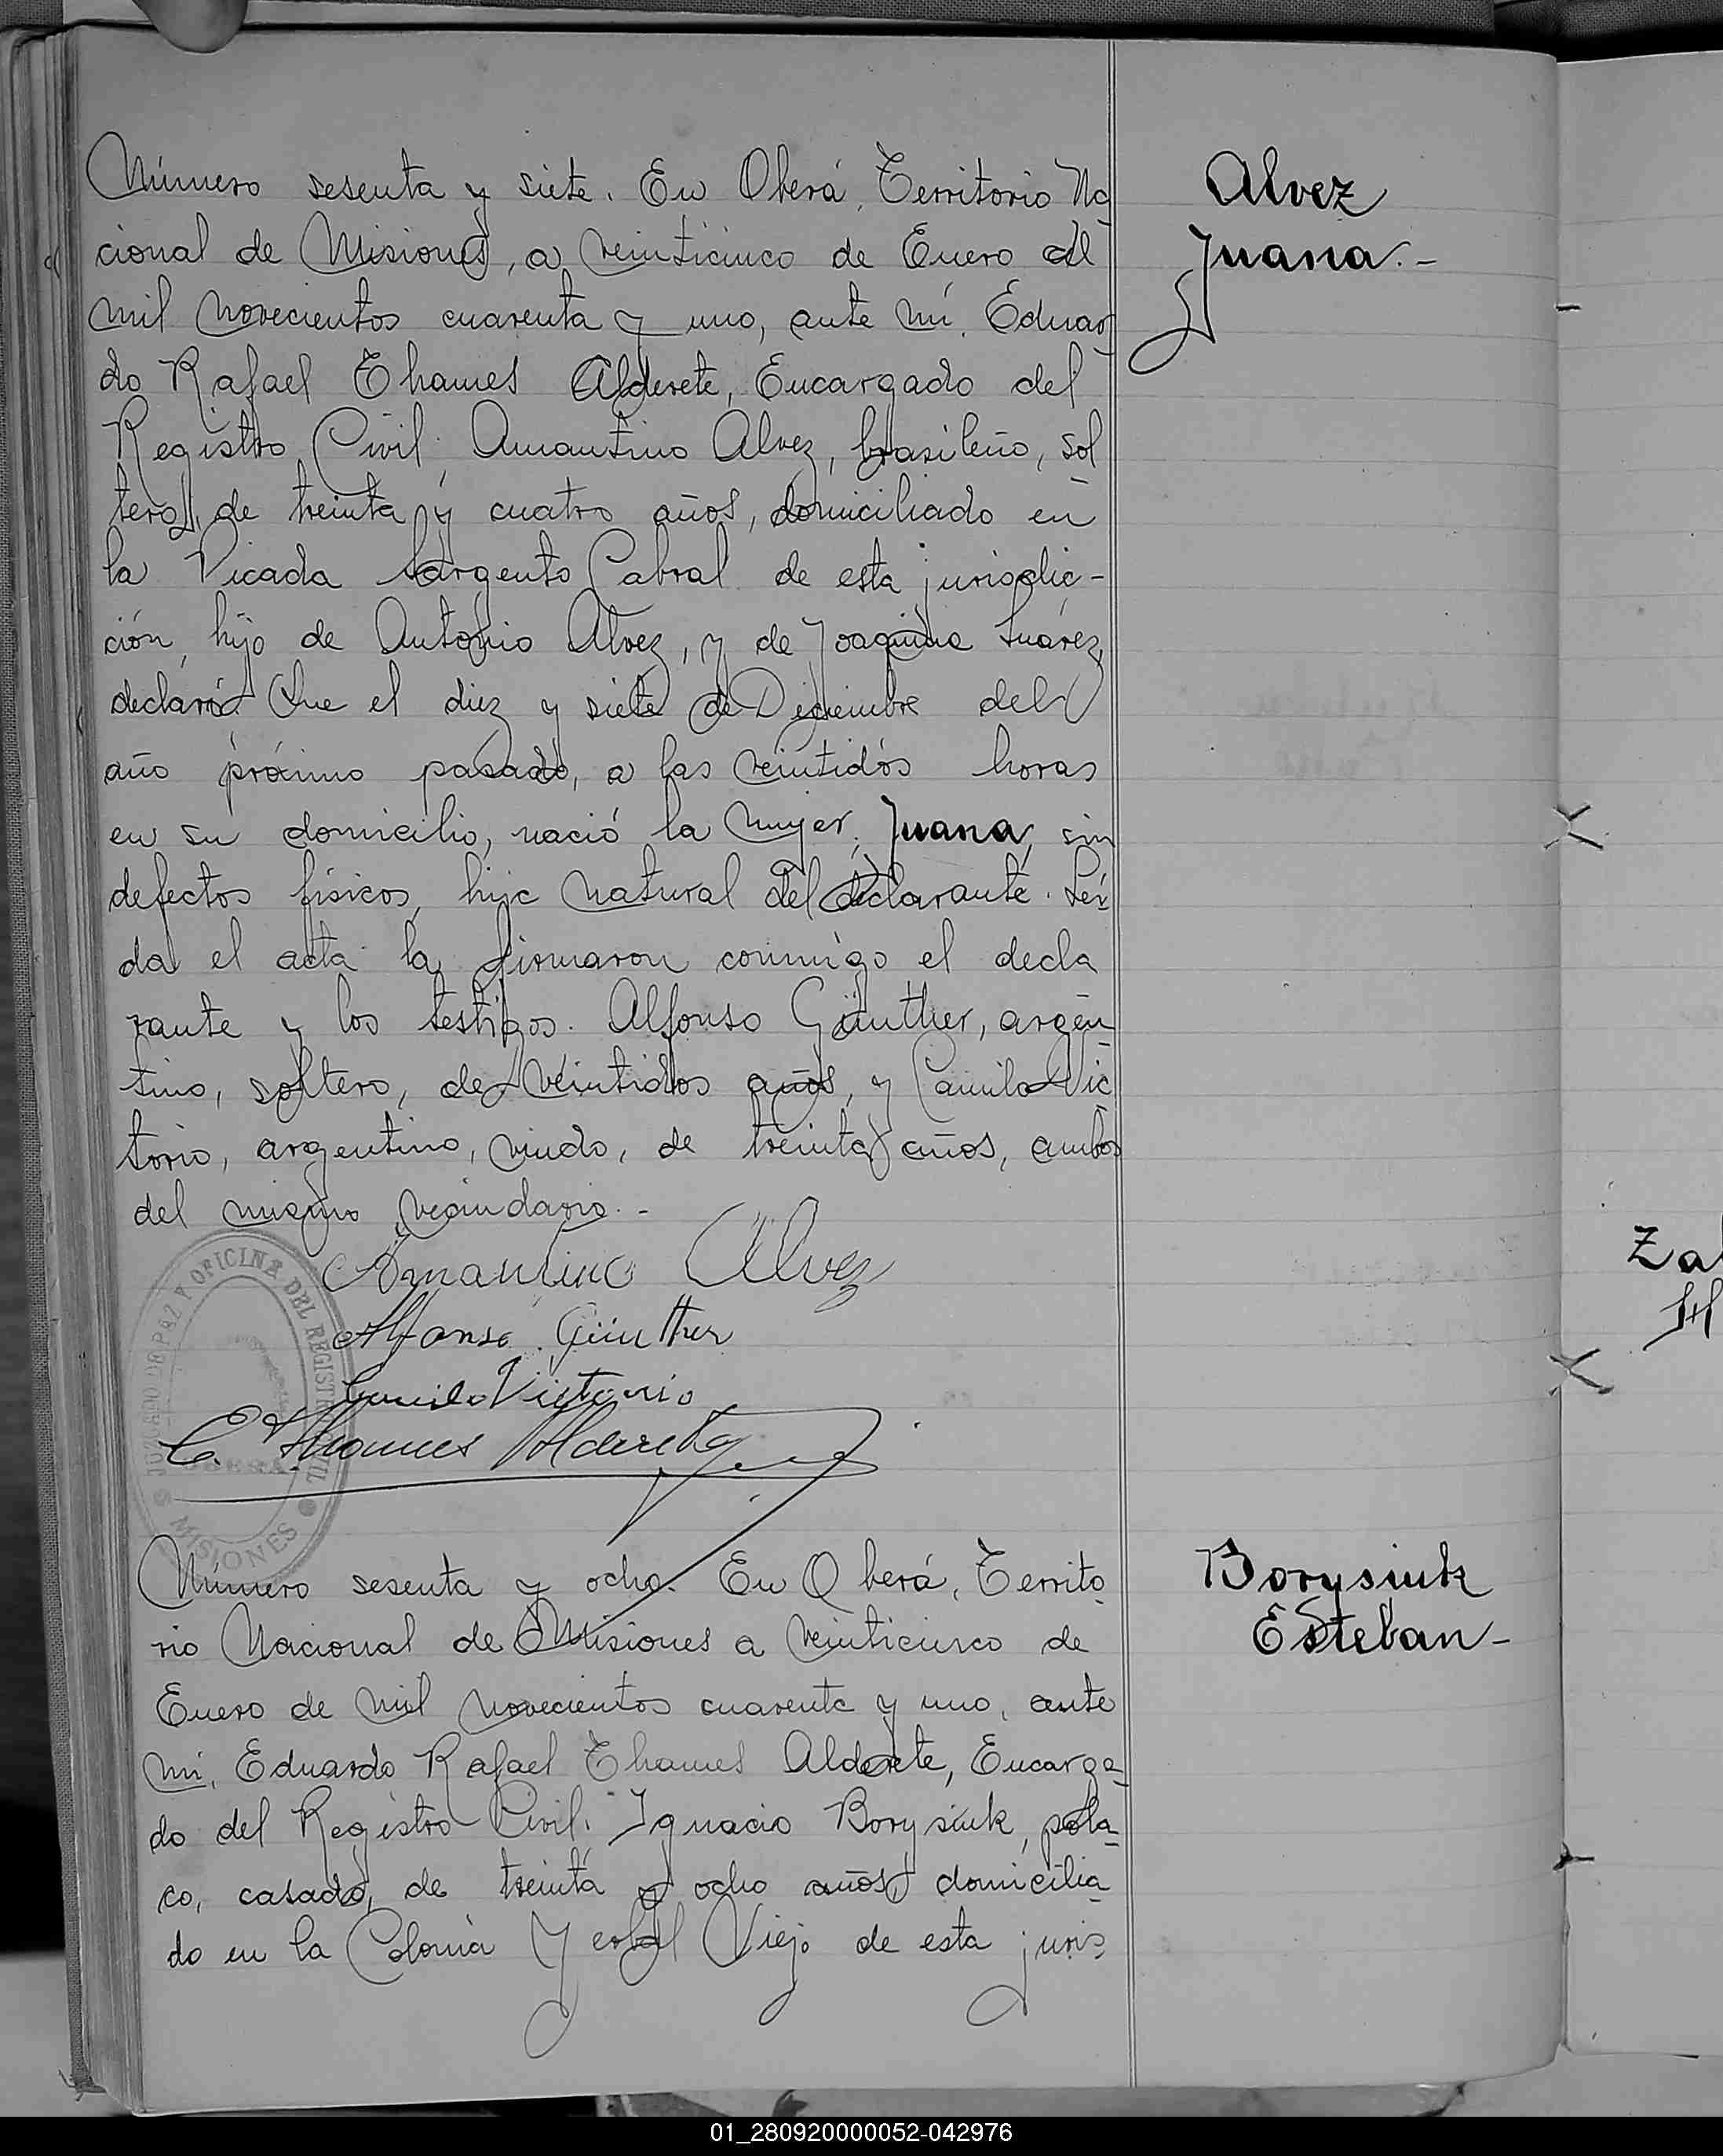 Número sesenta y siete. En Oberá, Territorio Na
cional de Misiones, a veinticinco de Enero de
mil novecientos cuarenta y uno, ante mí, Eduar
do Rafael Thames Alderete, Encargado del
Registro Civil: Amantino Alvez, brasileño, sol
tero, de treinta y cuatro años, domiciliado en
la Picada Sargento Cabral de esta jurisdic-
ción, hijo de Antonio Alvez, y de Joaquina Suárez,
declaró: Que el diez y siete de Diciembre del
año próximo pasado, a las veintidós horas
en su domicilio, nació la mujer: Juana, sin
defectos físicos, hija natural del declarante. Leí
da el acta la firmaron conmigo el decla
rante y los testigos: Alfonso Günther, argen
tino, soltero, de veintidos años, y Camilo Vic
torio, argentino, viudo, de treinta años, ambos
del mismo vecindario.-
Amantino Alvez
Alfonso Günther
Camilo Victorio
E. Thames Alderete
JUZGADO DE PAZ Y OFICINA DEL REGISTRO CIVIL
MISIONES
Alvez
Juana.-
Número sesenta y ocho. En Oberá, Territo
rio Nacional de Misiones a veinticinco de
Enero de mil novecientos cuarenta y uno, ante
mí, Eduardo Rafael Thames Alderete, Encarga
do del Registro Civil: Ignacio Borysiuk, pola
co, casado, de treinta y ocho años, domicilia
do en la Colonia Yerbal Viejo de esta juris
Borysiuk
Esteban-
Zal
01_280920000052-042976